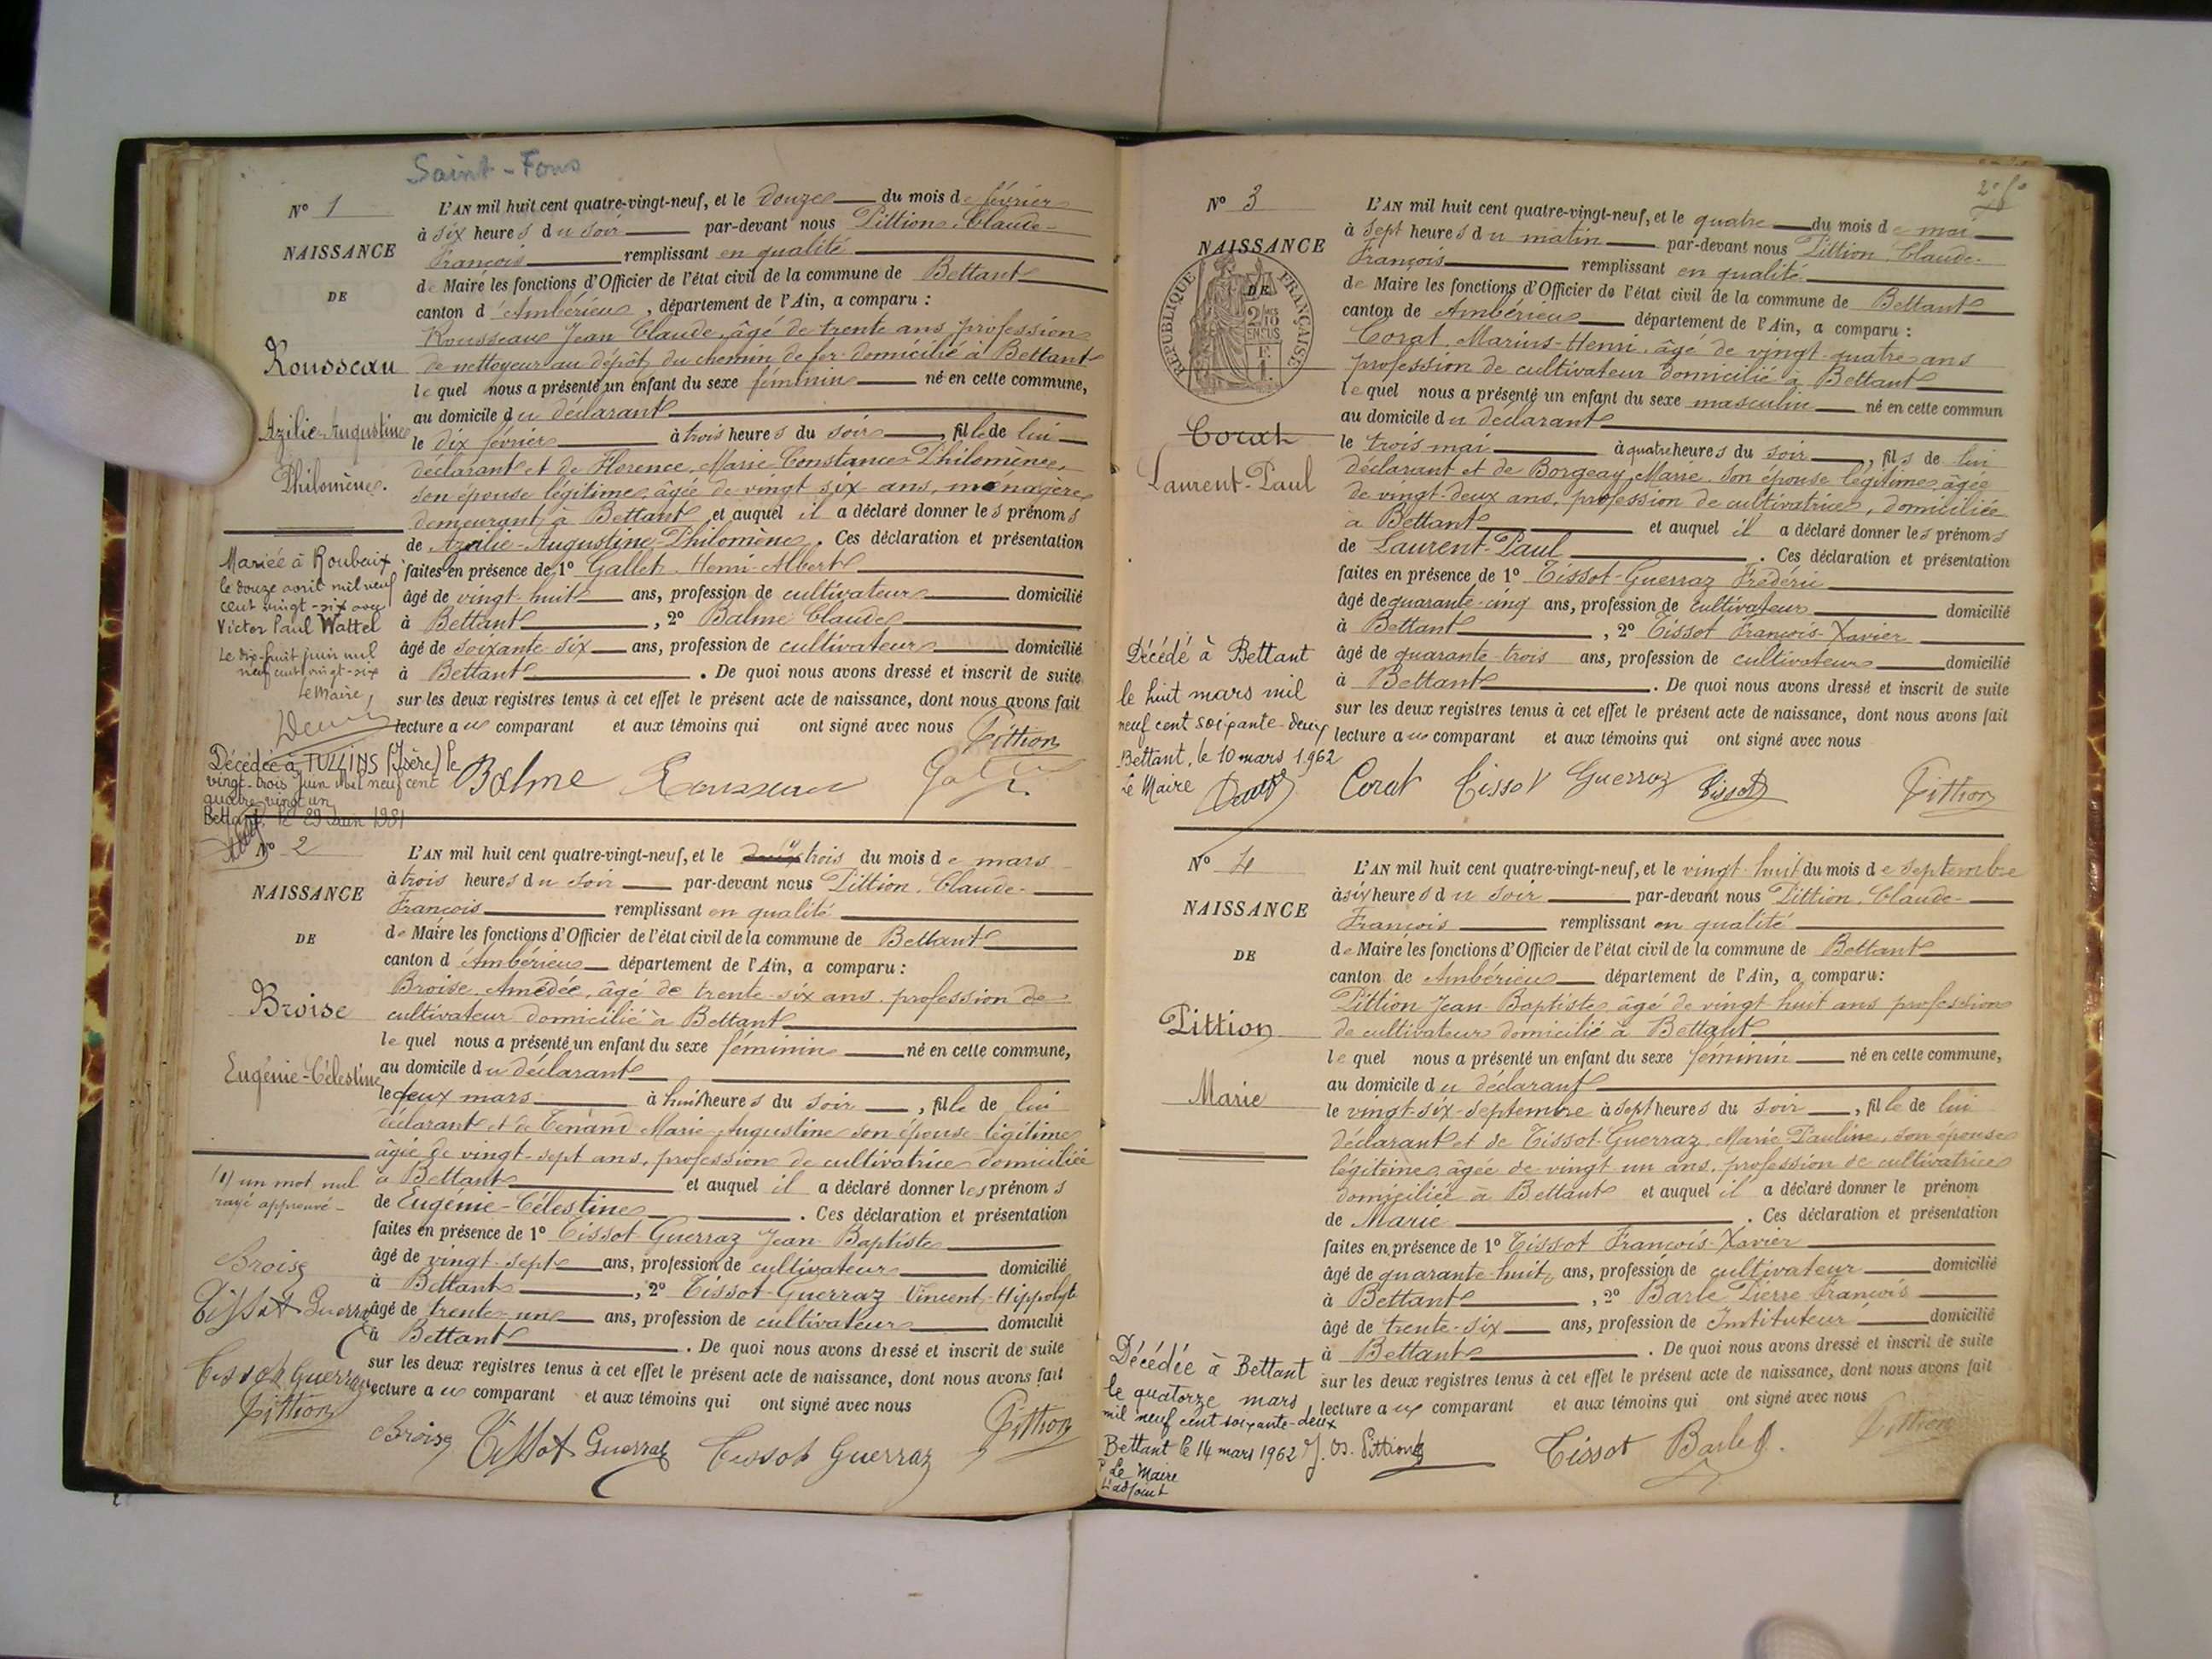 Saint-Fons
N° 1
NAISSANCE
DE
Rousseau
Azilie-Augustine
Philomène.
Mariée à Roubaix
le douze avril mil neuf
cent vingt-six avec
Victor Paul Wattel
Le dix-huit juin mil
neuf cent vingt-six
Le Maire,
Décédée à TULLINS (Isère) le
vingt-trois Juin Mil neuf cent
quatre-vingt un
Bettant, le 29 Juin 1981
L'AN mil huit cent quatre-vingt-neuf, et le douze du mois de février
à six heures du soir par-devant nous Pittion, Claude-
François remplissant en qualité
de Maire les fonctions d'Officier de l'état civil de la commune de Bettant
canton d'Ambérieu, département de l'Ain, a comparu :
Rousseau Jean Claude, âgé de trente ans, profession
de nettoyeur au dépôt du chemin de fer domicilié à Bettant
lequel nous a présenté un enfant du sexe féminin né en cette commune,
au domicile du déclarant
le dix février à trois heures du soir, fille de lui
déclarant et de Florence, Marie Constance Philomène,
son épouse légitime, âgée de vingt six ans, ménagère,
demeurant à Bettant et auquel il a déclaré donner les prénoms
de Azilie-Augustine-Philomène. Ces déclaration et présentation
faites en présence de 1° Gallet Henri-Albert
âgé de vingt-huit ans, profession de cultivateur domicilié
à Bettant, 2° Balme Claude
âgé de soixante-six ans, profession de cultivateur domicilié
à Bettant. De quoi nous avons dressé et inscrit de suite
sur les deux registres tenus à cet effet le présent acte de naissance, dont nous avons fait
lecture au comparant et aux témoins qui ont signé avec nous Pittion
Balme Rousseau
N° 2
NAISSANCE
DE
Broise
Eugénie-Célestine
(1) un mot nul
rayé approuvé -
Broise
Tissot Guerraz
Tissot Guerraz
Pittion
L'AN mil huit cent quatre-vingt-neuf, et le deux trois du mois de mars
à trois heures du soir par-devant nous Pittion, Claude-
François remplissant en qualité
de Maire les fonctions d'Officier de l'état civil de la commune de Bettant
canton d'Ambérieu département de l'Ain, a comparu :
Broise, Amédée, âgé de trente-six ans, profession de
cultivateur domicilié à Bettant
lequel nous a présenté un enfant du sexe féminin né en cette commune,
au domicile du déclarant
le deux mars à huit heures du soir, fille de lui
déclarant et de Tenand Marie Augustine son épouse légitime
âgée de vingt-sept ans, profession de cultivatrice domiciliée
à Bettant et auquel il a déclaré donner les prénoms
de Eugénie-Célestine. Ces déclaration et présentation
faites en présence de 1° Tissot-Guerraz Jean-Baptiste
âgé de vingt-sept ans, profession de cultivateur domicilié
à Bettant, 2° Tissot-Guerraz Vincent-Hippolyte
âgé de trente-un ans, profession de cultivateur domicilié
à Bettant. De quoi nous avons dressé et inscrit de suite
sur les deux registres tenus à cet effet le présent acte de naissance, dont nous avons fait
lecture au comparant et aux témoins qui ont signé avec nous
Broise Tissot Guerraz Tissot Guerraz Pittion
N° 3
NAISSANCE
DE
RÉPUBLIQUE FRANÇAISE
2/10
EN SUS
Corat
Laurent-Paul
Décédé à Bettant
le huit mars mil
neuf cent soixante-deux
Bettant, le 10 mars 1962
Le Maire
L'AN mil huit cent quatre-vingt-neuf, et le quatre du mois de mai
à sept heures du matin par-devant nous Pittion, Claude-
François remplissant en qualité
de Maire les fonctions d'Officier de l'état civil de la commune de Bettant
canton de Ambérieu département de l'Ain, a comparu :
Corat, Marius-Henri, âgé de vingt-quatre ans
profession de cultivateur domicilié à Bettant
lequel nous a présenté un enfant du sexe masculin né en cette commun
au domicile du déclarant
le trois mai à quatre heures du soir, fils de lui
déclarant et de Borgeay, Marie, son épouse légitime, âgée
de vingt-deux ans, profession de cultivatrice, domiciliée
à Bettant et auquel il a déclaré donner les prénoms
de Laurent-Paul. Ces déclaration et présentation
faites en présence de 1° Tissot-Guerraz Frédéric
âgé de quarante-cinq ans, profession de cultivateur domicilié
à Bettant, 2° Tissot François-Xavier
âgé de quarante-trois ans, profession de cultivateur domicilié
à Bettant. De quoi nous avons dressé et inscrit de suite
sur les deux registres tenus à cet effet le présent acte de naissance, dont nous avons fait
lecture au comparant et aux témoins qui ont signé avec nous
Corat Tissot Guerraz Tissot Pittion
N° 4
NAISSANCE
DE
Pittion
Marie
Décédée à Bettant
le quatorze mars
mil neuf cent soixante-deux
Bettant le 14 mars 1962
P Le Maire
L'adjoint
L'AN mil huit cent quatre-vingt-neuf, et le vingt-huit du mois de septembre
à six heures du soir par-devant nous Pittion, Claude-
François remplissant en qualité
de Maire les fonctions d'Officier de l'état civil de la commune de Bettant
canton de Ambérieu département de l'Ain, a comparu :
Pittion Jean-Baptiste âgé de vingt-huit ans profession
de cultivateur domicilié à Bettant
lequel nous a présenté un enfant du sexe féminin né en cette commune,
au domicile du déclarant
le vingt-six septembre à sept heures du soir, fille de lui
déclarant et de Tissot-Guerraz Marie-Pauline, son épouse
légitime, âgée de vingt un ans, profession de cultivatrice
domiciliée à Bettant et auquel il a déclaré donner le prénom
de Marie. Ces déclaration et présentation
faites en présence de 1° Tissot François-Xavier
âgé de quarante-huit ans, profession de cultivateur domicilié
à Bettant, 2° Barle Pierre François
âgé de trente-six ans, profession de Instituteur domicilié
à Bettant. De quoi nous avons dressé et inscrit de suite
sur les deux registres tenus à cet effet le présent acte de naissance, dont nous avons fait
lecture au comparant et aux témoins qui ont signé avec nous
J. B. Pittion Tissot Barle Pittion